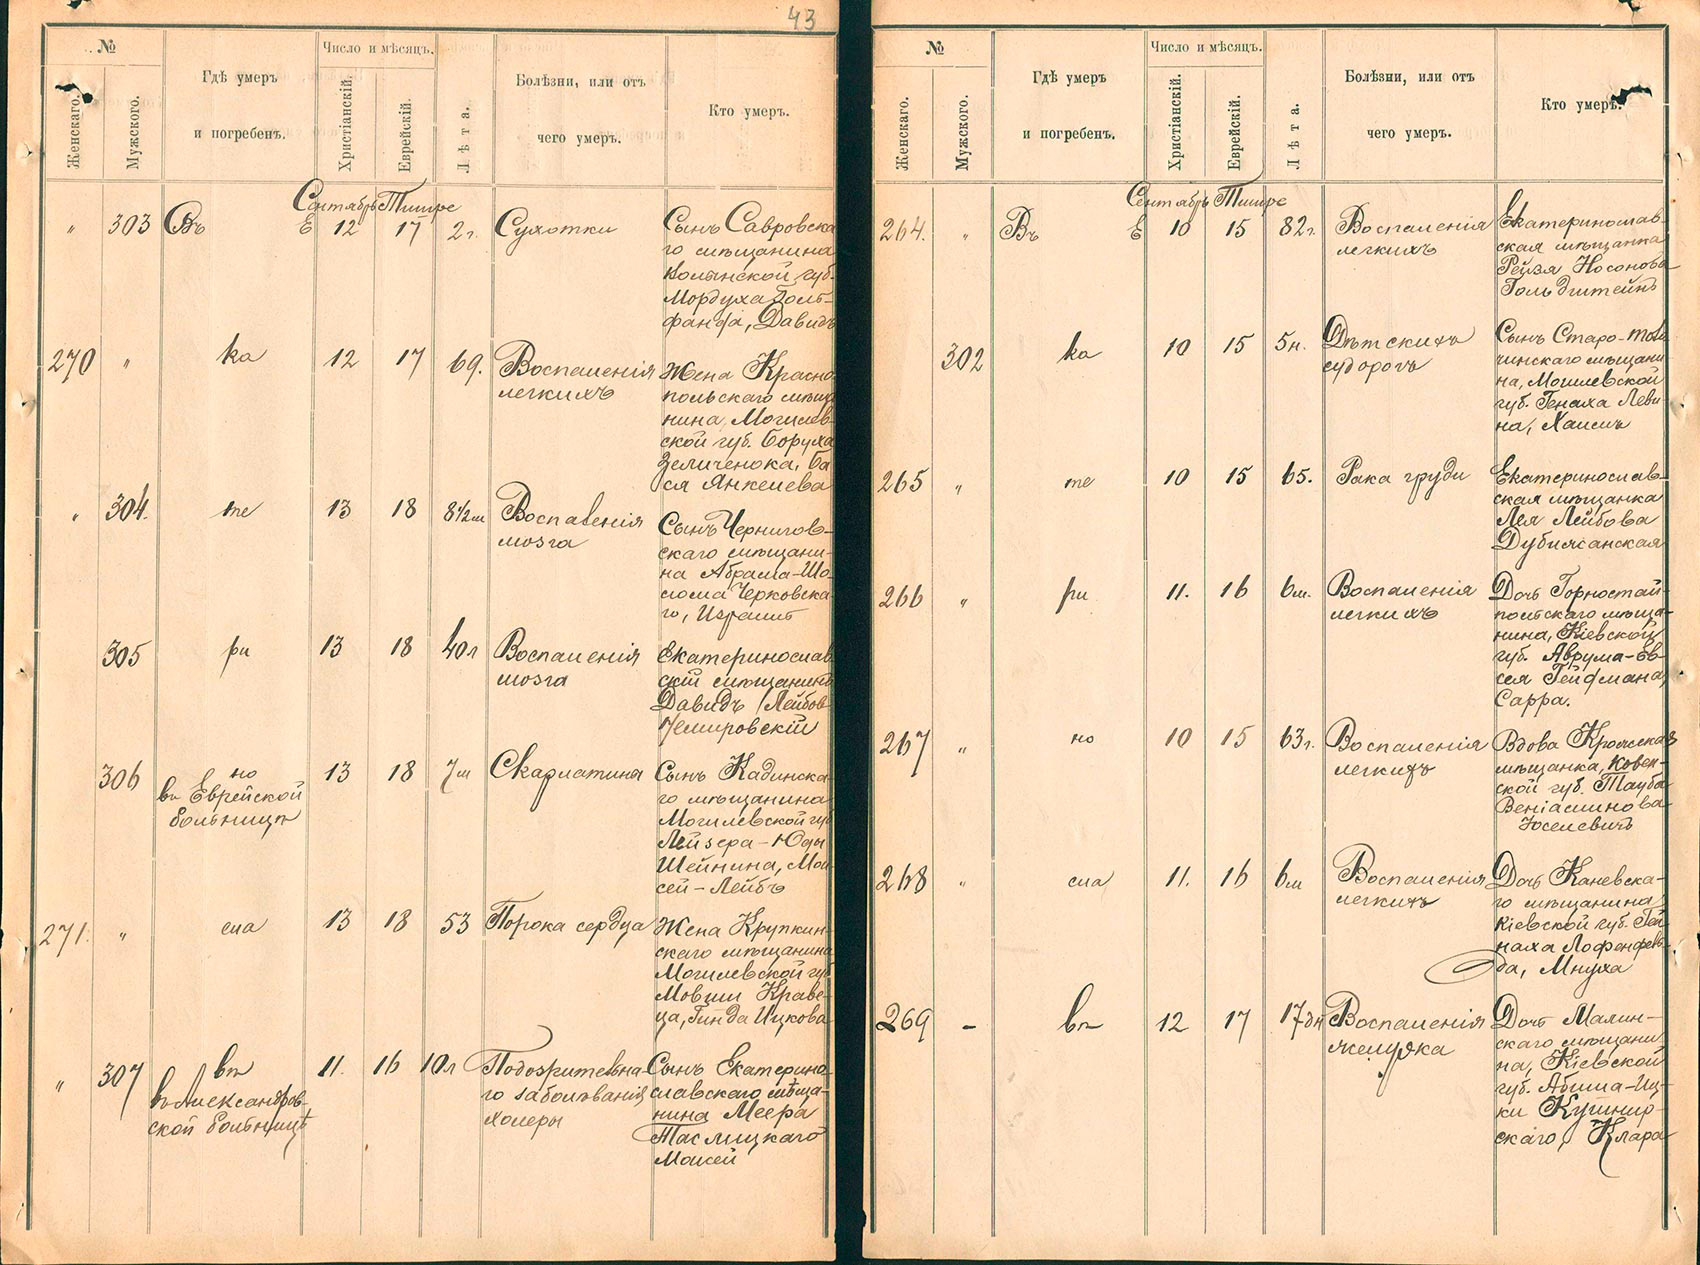 43
№
Женскаго.
Мужского.
Гдѣ умеръ
и погребенъ.
Число и мѣсяцъ.
Христіанскій.
Еврейскій.
Лѣта.
Болѣзни, или отъ
чего умеръ.
Кто умеръ.
Сентябрь Тишре
" 303 Въ Е 12 17 2г. Сухотки
Сынъ Савровска
го мѣщанина
Волынской губ.
Мордуха Голь-
фанда, Давидъ
270 " ка 12 17 69. Воспаленія
легкихъ
Жена Красно-
польскаго мѣща
нина, Могилев-
ской губ. Боруха
Зеличенока, Ба
ся Янкелева
" 304. те 13 18 8½м Воспаленія
мозга
Сынъ Чернигов-
скаго мѣщани-
на Абрама-Шо-
лома Черковска-
го, Израиль
305 ри 13 18 40л Воспаленія
мозга
Екатеринослав
скій мѣщанинъ
Давидъ Лейбов
Немировскій
306 но 13 18 7м Скарлатина
въ Еврейской
больницѣ
Сынъ Кадинска-
го мѣщанина
Могилевской губ
Лейзера-Юды
Шейнина, Мои
сей-Лейбъ
271. " сла 13 18 53 Порока сердца
Жена Крупкин-
скаго мѣщанина
Могилевской губ
Мовши Краве-
ца, Гинда Ицкова
" 307 въ 11. 16 10л Подозрительна-
го заболѣванія
холеры
въ Александров-
ской больницѣ
Сынъ Екатерино
славскаго мѣща-
нина Меера
Таслицкаго
Моисей
№
Женскаго.
Мужского.
Гдѣ умеръ
и погребенъ.
Число и мѣсяцъ.
Христіанскій.
Еврейскій.
Лѣта.
Болѣзни, или отъ
чего умеръ.
Кто умеръ.
Сентябрь Тишре
264. " Въ Е 10 15 82г. Воспаленія
легкихъ
Екатеринослав-
ская мѣщанка
Рейзя Носонова
Гольдштейнъ
302 ка 10 15 5н. Дѣтскихъ
судорогъ
Сынъ Старо-толо
чинскаго мѣщани
на, Могилевской
губ. Генаха Леви
на, Хаимъ
265 " те 10 15 65. Рака груди
Екатеринослав-
ская мѣщанка
Лея Лейбова
Дубиясанская
266 " ри 11. 16 6м. Воспаленія
легкихъ
Дочь Горностай-
польскаго мѣща-
нина, Кіевской
губ. Аврума-Ев-
сея Гейфмана,
Сарра.
267 " но 10 15 63г. Воспаленія
легкихъ
Вдова Крожская
мѣщанка, Ковен-
ской губ. Тауба
Веніаминова
Юселевичъ
268 " сла 11. 16 6м Воспаленія
легкихъ
Дочь Каневска-
го мѣщанина
Кіевской губ. Ген
наха Лофенфель-
да, Мнуха
269 - въ 12 17 17дн Воспаленія
желудка
Дочь Малин-
скаго мѣщани
на, Кіевской
губ. Абиша-Иц-
ки Кушнир-
скаго, Клара